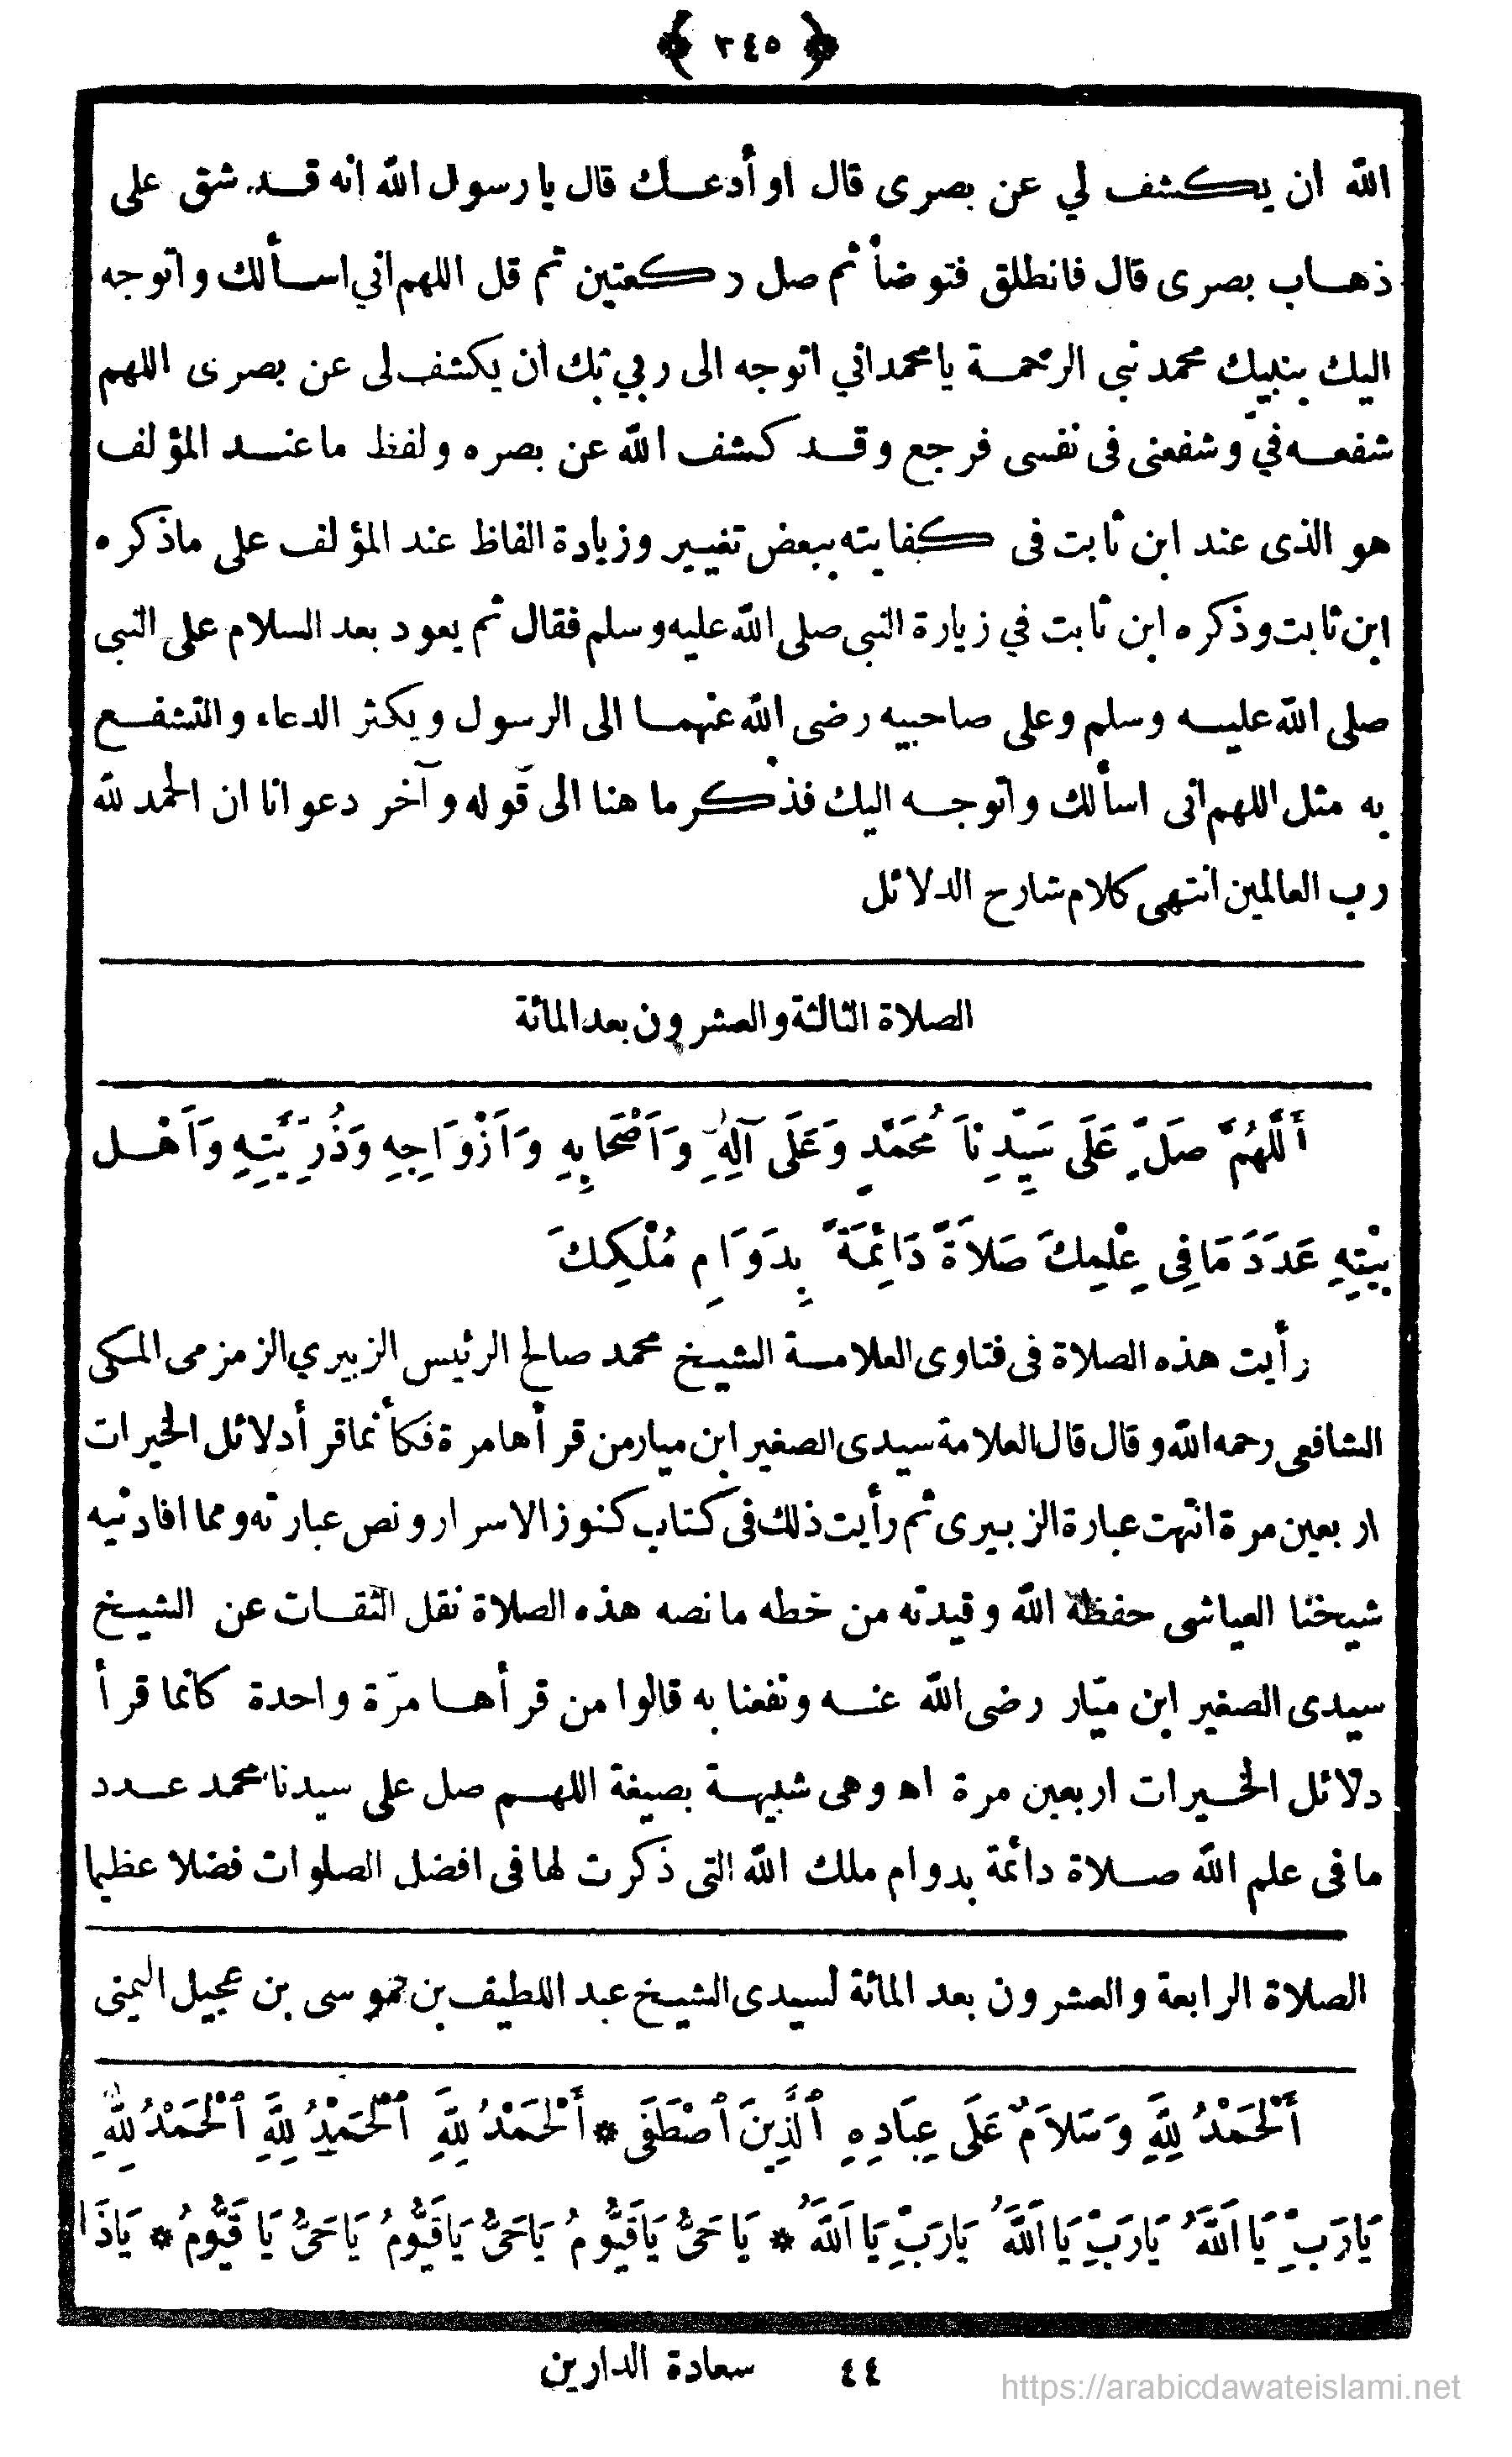 ﴿ ٣٤٥ ﴾
الله ان يكشف لي عن بصرى قال او أدعك قال يا رسول الله انه قد شق على
ذهاب بصرى قال فانطلق فتوضأ ثم صل ركعتين ثم قل اللهم اني اسألك واتوجه
اليك بنبيك محمد نبى الرحمة يا محمد اني اتوجه الى ربي بك ان يكشف لى عن بصرى اللهم
شفعه فيّ وشفعنى فى نفسى فرجع وقد كشف الله عن بصره ولفظ ما عند المؤلف
هو الذى عند ابن ثابت فى كفايته ببعض تغيير وزيادة الفاظ عند المؤلف على ماذكره
ابن ثابت وذكره ابن ثابت في زيارة النبى صلى الله عليه وسلم فقال ثم يعود بعد السلام على النبى
صلى الله عليه وسلم وعلى صاحبيه رضى الله عنهما الى الرسول ويكثر الدعاء والتشفع
به مثل اللهم انى اسألك واتوجه اليك فذكر ما هنا الى قوله وآخر دعوانا ان الحمد لله
رب العالمين انتهى كلام شارح الدلائل
الصلاة الثالثة والعشرون بعد المائة
أَللَّهُمَّ صَلِّ عَلَى سَيِّدِنَا مُحَمَّدٍ وَعَلَى آلِهِ وَاَصْحَابِهِ وَاَزْوَاجِهِ وَذُرِّيَّتِهِ وَاَهْلِ
بَيْتِهِ عَدَدَ مَا فِى عِلْمِكَ صَلَاةً دَائِمَةً بِدَوَامِ مُلْكِكَ
رأيت هذه الصلاة فى فتاوى العلامة الشيخ محمد صالح الرئيس الزبيري الزمزمى المكى
الشافعى رحمه الله وقال قال العلامة سيدى الصغير ابن ميار من قرأها مرة فكأنما قرأ دلائل الخيرات
اربعين مرة انتهت عبارة الزبيرى ثم رأيت ذلك فى كتاب كنوز الاسرار ونص عبارته ومما افادنيه
شيخنا العياشى حفظه الله وقيدته من خطه ما نصه هذه الصلاة نقل الثقات عن الشيخ
سيدى الصغير ابن ميّار رضى الله عنه ونفعنا به قالوا من قرأها مرّة واحدة كانما قرأ
دلائل الخيرات اربعين مرة اه وهى شبيهة بصيغة اللهم صل على سيدنا محمد عدد
ما فى علم الله صلاة دائمة بدوام ملك الله التى ذكرت لها فى افضل الصلوات فضلا عظيما
الصلاة الرابعة والعشرون بعد المائة لسيدى الشيخ عبد اللطيف بن موسى بن عجيل اليمنى
أَلْحَمْدُ لِلَّهِ وَسَلَامٌ عَلَى عِبَادِهِ ٱلَّذِينَ ٱصْطَفَى * أَلْحَمْدُ لِلَّهِ ٱلْحَمْدُ لِلَّهِ ٱلْحَمْدُ لِلّٰهِ
يَارَبِّ يَا اَللَّهُ يَارَبِّ يَا اَللَّهُ يَارَبِّ يَا اَللَّهُ * يَا حَىُّ يَاقَيُّومُ يَاحَىُّ يَاقَيُّومُ يَاحَىُّ يَا قَيُّومُ * يَاذَا
٤٤ سعادة الدارين
https://arabicdawateislami.net